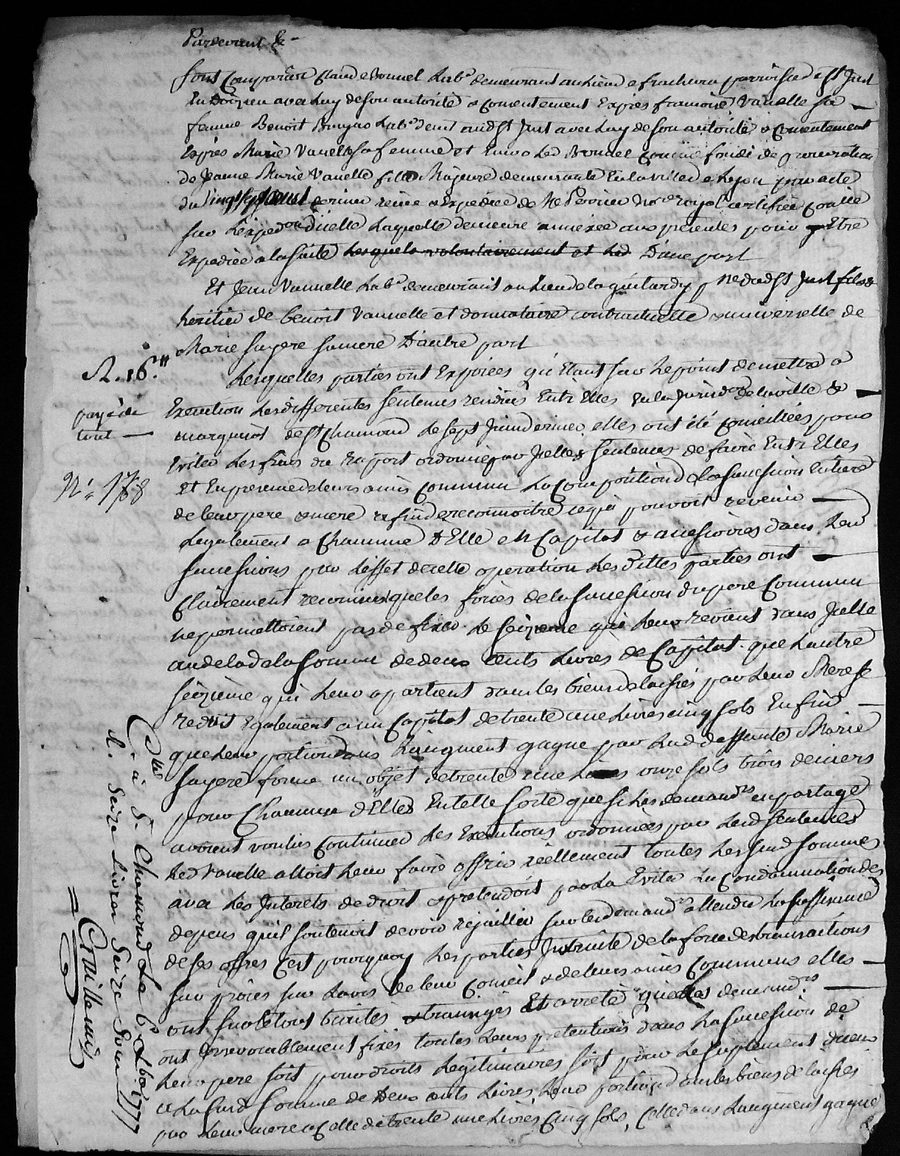 Pardevant &c
sont Comparûs Claude Bonnel Lab.r demeurant au Lieu de parroisse de St Just
En Doizieu avec Luy de son autorité & consentement Exprès françoise Vanelle sa
femme Benoit Lab.r dud St Just avec Luy de son autorité & consentement
Exprès Marie Vanelle sa femme et Encore Led Bonnel comme fondé de procuration
de Jeanne Marie Vanelle fille Majeure demeurante En la ville de Lyon par acte
du dernier reçue & Expédiée de Me no.re royal certifiée
sur L'expédon d'icelle Laquelle demeure annexée aux présentes pour y Etre
Expédiée à la suite lesquels volontairement et Led D'une part
Et Jean Vanelle Lab.r demeurant au Lieu de la guitardy p dud St Just fils &
heritier de benoit Vanelle et donnataire contractuelle & universelle de
Marie sayere sa mere D'autre part
R. 16.tt
payé du
tout
N.o 178
Lesquelles parties ont Exposées qu'Etant sur Le point de mettre à
Execution Les differentes sentences rendues Entr'Elles En la Jurid.on de la ville &
marquisat de St Chamond Le sept Juin dernier elles ont été conseillées pour
Eviter Les frais du rapport ordonné par Jcelles sentences de faire Entr'Elles
Et En presence de leurs amis communs La composition de la succession Entiere
de leur pere & mere afin de reconnoitre ce qui pouvoit revenir
Legalement a Chacune d'Elle en Capital & accessoires dans Led
successions par L'effet de cette operation Les dittes parties ont
Clairement reconnus que les forces de la succession du pere Commun
ne permettoient pas de fixer Le seizieme que Leur revient dans Jcelle
au dela de la somme de deux cents Livres de Capital que L'autre
seizième qui Leur apartient dans les biens delaissés par Leur Mere se
reduit Egalement a un Capital de trente une Livres cinq sols Enfin
que Leur portion dans L'augment gagné par Lad deffunte Marie
sayere forme un objet de trente une Livres onze sols trois deniers
pour Chacune d'Elles En telle sorte que si Les demand.rs en partage
avoient voulus Continuer Les Executions ordonnées par Lesd sentences
Led Vanelle alloit Leur faire offrir réellement toutes Les susd sommes
avec Les Interets de droit & pretendoit par La Eviter La Condamnation des
depens qu'il soutenoit devoir rejaillir sur les demand.rs attendu La suffisance
de ses offres C'est pourquoy Les parties Instruite de la force des transactions
sur procès sur L'avis de leur Conseil & de leurs amis Communs elles
ont sur le tout traités & transigés Et arreté que les demand.rs
ont Irrevocablement fixés toutes Leurs pretentions dans La succession de
Leur pere soit pour droits Legitimaires soit pour Le suplement d'iceux
a La susd somme de Deux cents Livres, Leur portion dans les biens delaissés
par Leur mere a Celle de trente une Livres Cinq sols, Celle dans L'augment gagné
C.té à St Chamond Le 6 8bre 1777
R. Seize Livres Seize Sous